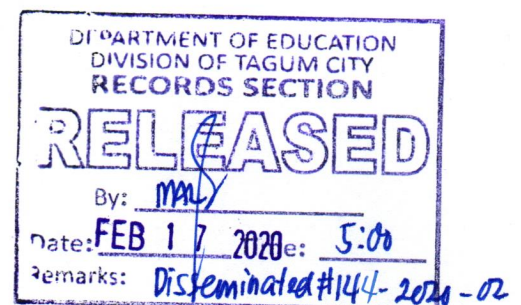 DEPARTMENT OF EDUCATION
DIVISION OF TAGUM CITY
RECORDS SECTION
RELEASED
By:
Date: FEB 17 2020 e: 5:00
Remarks: Disseminated #144-2020-02